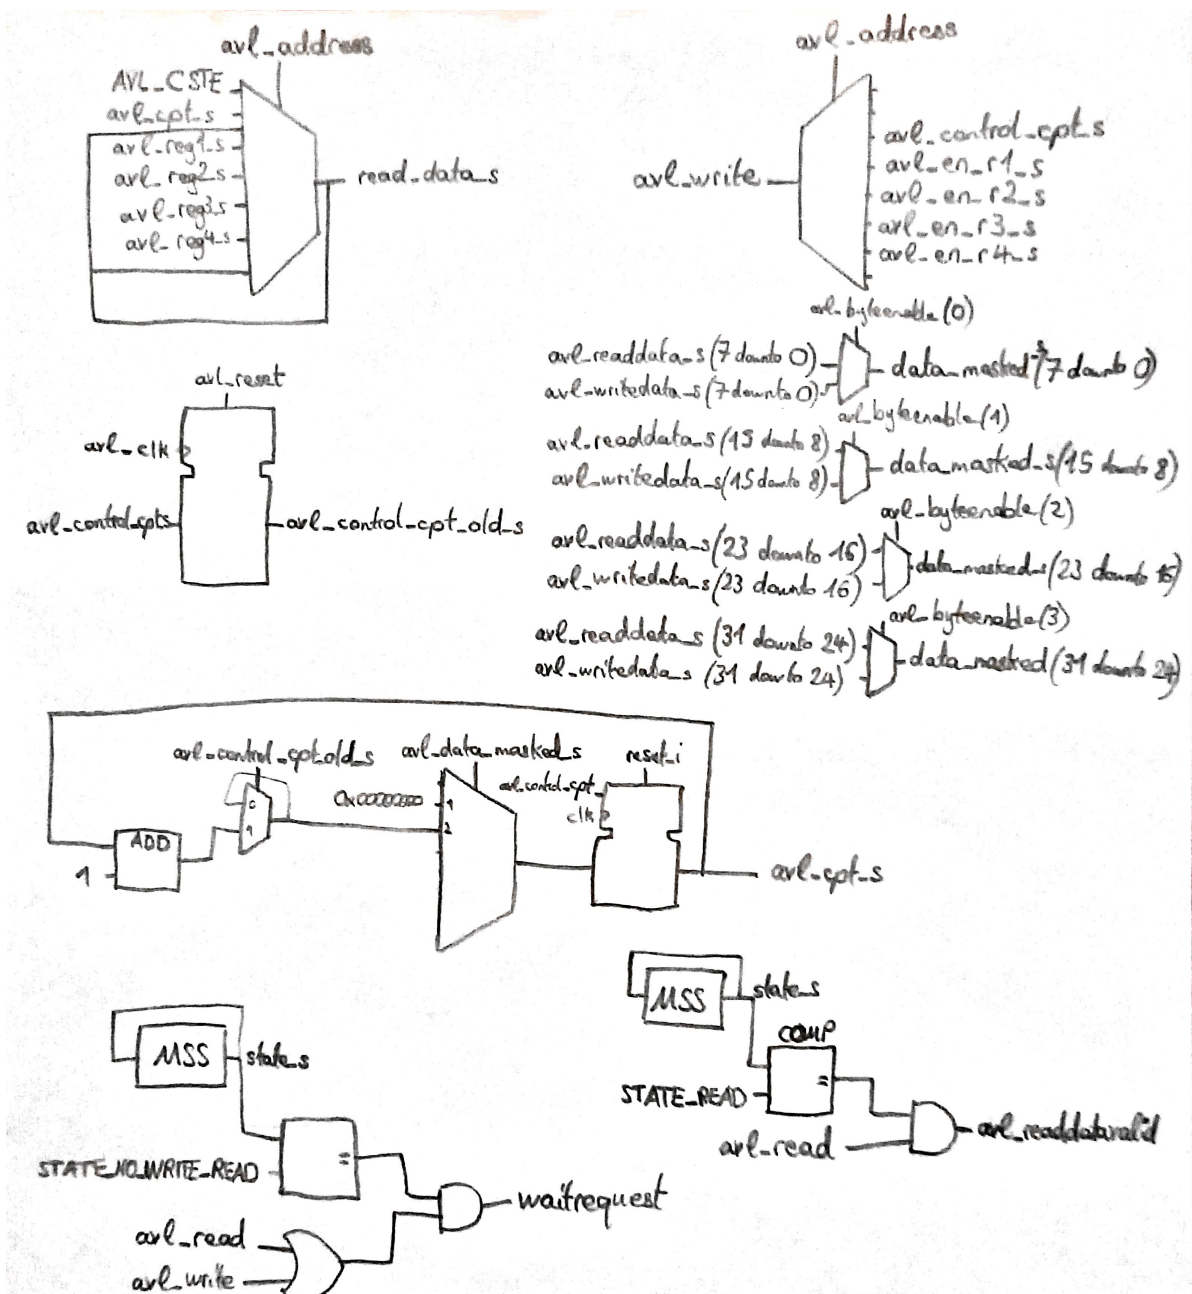 avl_address
AVL_CSTE
avl_cpt_s
avl_reg1_s
avl_reg2_s
avl_reg3_s
avl_reg4_s
read_data_s
avl_address
avl_write
avl_control_cpt_s
avl_en_r1_s
avl_en_r2_s
avl_en_r3_s
avl_en_r4_s
avl_reset
avl_clk
avl_control_cpts
avl_control_cpt_old_s
avl_byteenable(0)
avl_readdata_s(7 downto 0)
avl_writedata_s(7 downto 0)
data_masked_s(7 downto 0)
avl_byteenable(1)
avl_readdata_s(15 downto 8)
avl_writedata_s(15 downto 8)
data_masked_s(15 downto 8)
avl_byteenable(2)
avl_readdata_s(23 downto 16)
avl_writedata_s(23 downto 16)
data_masked_s(23 downto 16)
avl_byteenable(3)
avl_readdata_s(31 downto 24)
avl_writedata_s(31 downto 24)
data_masked(31 downto 24)
avl_control_cpt_old_s
avl_data_masked_s
reset_i
0
1
0x00000000
1
2
avl_control_cpt
clk
ADD
1
avl_cpt_s
MSS
state_s
STATE_NO_WRITE_READ
=
avl_read
avl_write
waitrequest
MSS
state_s
COMP
STATE_READ
=
avl_read
avl_readdatavalid